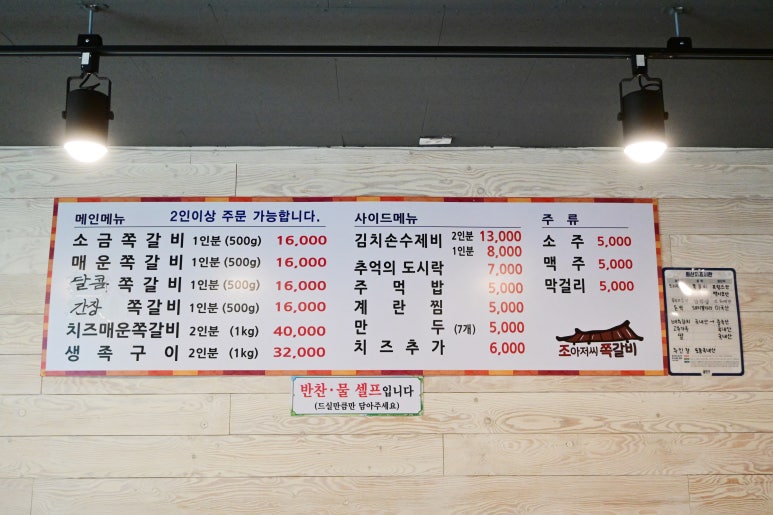 메인메뉴 2인이상 주문 가능합니다.
소금쪽갈비 1인분 (500g) 16,000
매운쪽갈비 1인분 (500g) 16,000
달콤쪽갈비 1인분 (500g) 16,000
간장 쪽갈비 1인분 (500g) 16,000
치즈매운쪽갈비 2인분 (1kg) 40,000
생족구이 2인분 (1kg) 32,000
사이드메뉴
김치손수제비 2인분 13,000
1인분 8,000
추억의 도시락 7,000
주먹밥 5,000
계란찜 5,000
만두 (7개) 5,000
치즈추가 6,000
주류
소주 5,000
맥주 5,000
막걸리 5,000
조아저씨 쪽갈비
반찬·물 셀프입니다
(드실만큼만 담아주세요)
원산지표시판
국내산